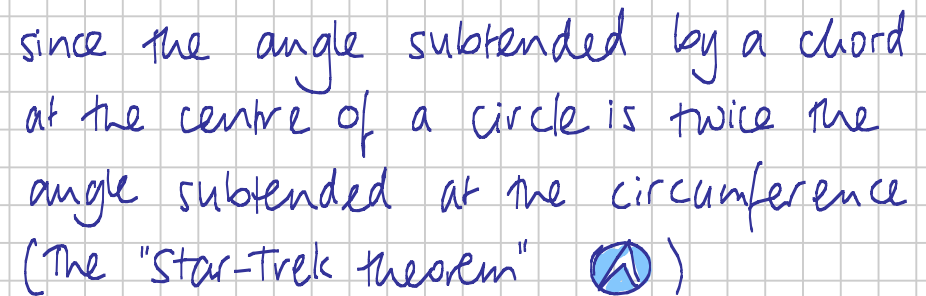 since the angle subtended by a chord
at the centre of a circle is twice the
angle subtended at the circumference
(The "Star-Trek theorem" )